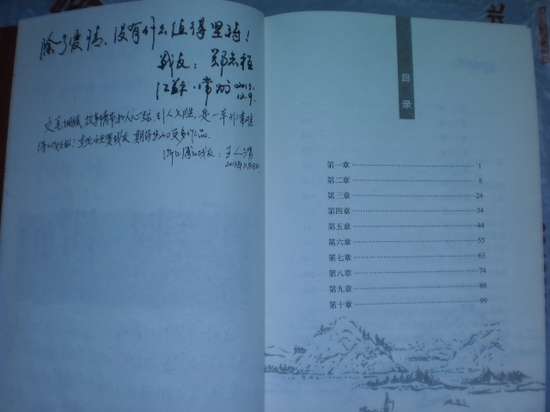 除了爱情,没有什么值得坚持!
战友:郑
江苏·常州 2013.
12.9.
文笔细腻,故事情节扣人心弦,引人入胜,是一部非常难
得的作品!期待更多作品。
浙江 战友:王
2013年
目录
第一章 1
第二章 8
第三章 24
第四章 34
第五章 44
第六章 55
第七章 63
第八章 74
第九章 88
第十章 99